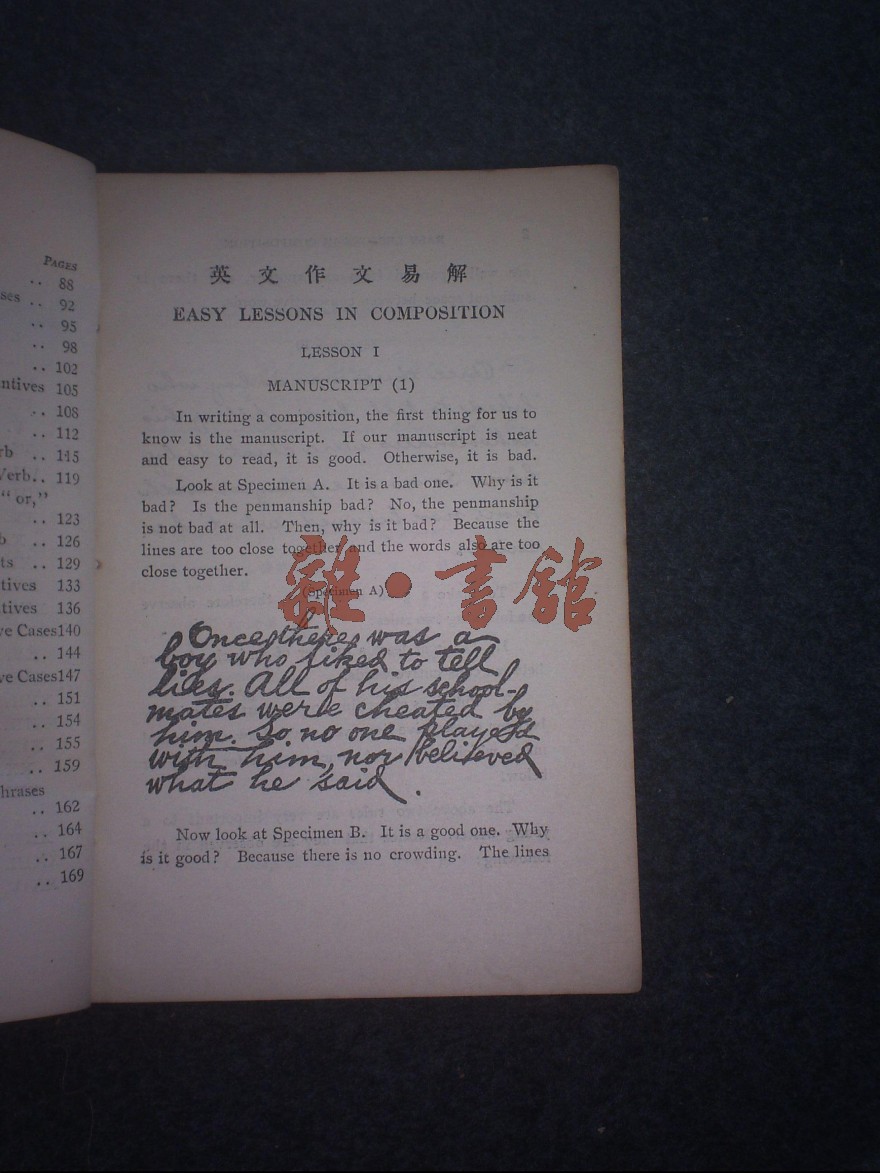 PAGES
.. 88
ses .. 92
.. 95
.. 98
.. 102
ntives 105
.. 108
.. 112
rb .. 115
Verb.. 119
" or,"
.. 123
b .. 126
ts .. 129
tives 133
tatives 136
ve Cases140
.. 144
ve Cases147
.. 151
.. 154
.. 155
.. 159
hrases
.. 162
.. 164
.. 167
.. 169
英文作文易解
EASY LESSONS IN COMPOSITION
LESSON I
MANUSCRIPT (1)
In writing a composition, the first thing for us to
know is the manuscript. If our manuscript is neat
and easy to read, it is good. Otherwise, it is bad.
Look at Specimen A. It is a bad one. Why is it
bad? Is the penmanship bad? No, the penmanship
is not bad at all. Then, why is it bad? Because the
lines are too close together and the words also are too
close together.
(Specimen A)
Once there was a
boy who liked to tell
lies. All of his school-
mates were cheated by
him. So no one played
with him, nor believed
what he said.
Now look at Specimen B. It is a good one. Why
is it good? Because there is no crowding. The lines
雜·書館